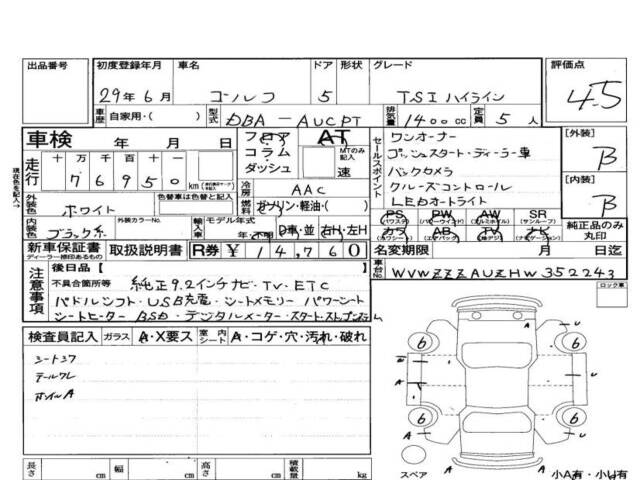 出品番号 初度登録年月 車名 ドア 形状 グレード 評価点
29年6月 ゴルフ 5 TSIハイライン 4.5
車歴 自家用・( ) 型式 DBA-AUCPT 排気量 1400cc 定員 5人
車検 年 月 日 フロア コラム ダッシュ AT MTのみ記入 速
走行 十 万 千 百 十
7 6 9 5 0 km
外装色 ホワイト 色替車は色替と記入
冷房 AAC
燃料 ガソリン・軽油・( )
内装色 ブラック系 外装カラーNo. 輸入車 モデル年式 年・不明 D車・並 右H・左H
セールスポイント
ワンオーナー
プッシュスタート・ディーラー車
バックカメラ
クルーズコントロール
LEDオートライト
PS PW AW SR
(パワステ) (パワーウインド) (アルミホイル) (サンルーフ)
カワ AB TV ナビ
(カワシート) (エアバッグ) (地デジ) (ナビゲーション)
純正品のみ丸印
[外装] B
[内装] B
現在色を記入→
新車保証書 取扱説明書 R券 ¥14,760 名変期限 月 日迄
ディーラー捺印あるもの
車台No. WVWZZZAUZHW352243
注意事項 後日品 [ ]
不具合箇所等 純正9.2インチナビ・TV・ETC
パドルシフト・USB充電・シートメモリー パワーシート
シートヒーター BSD・デジタルメーター・スタートストップシステム
ロック車
検査員記入 ガラス A・X要ス 室内シート A・コゲ・穴・汚れ・破れ
シートスワ
テールワレ
ホイルA
6 6 6 6
A U A U U A A
スペア 小A有・小U有
長さ cm 幅 cm 高さ cm 積載量 kg